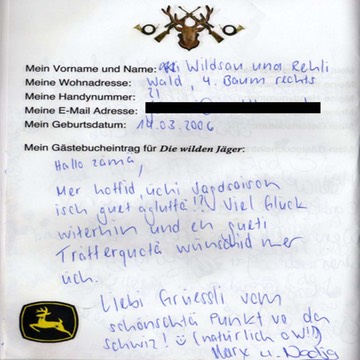 Mein Vorname und Name: Wildsau und Rehli
Meine Wohnadresse: Wald, 4. Baum rechts
Meine Handynummer: 21
Meine E-Mail Adresse:
Mein Geburtsdatum: 14.03.2006
Mein Gästebucheintrag für Die wilden Jäger:
Hallo zäma,
Mer hoffid, üchi Jagdsaison
isch guet aglufta!? Viel Glück
witerhin und en gueti
Träfferquota wünschid mer
üch.
Liebi Grüessli vom
schönschtä Punkt vo dä
schwiz! (natürlich OW!!)